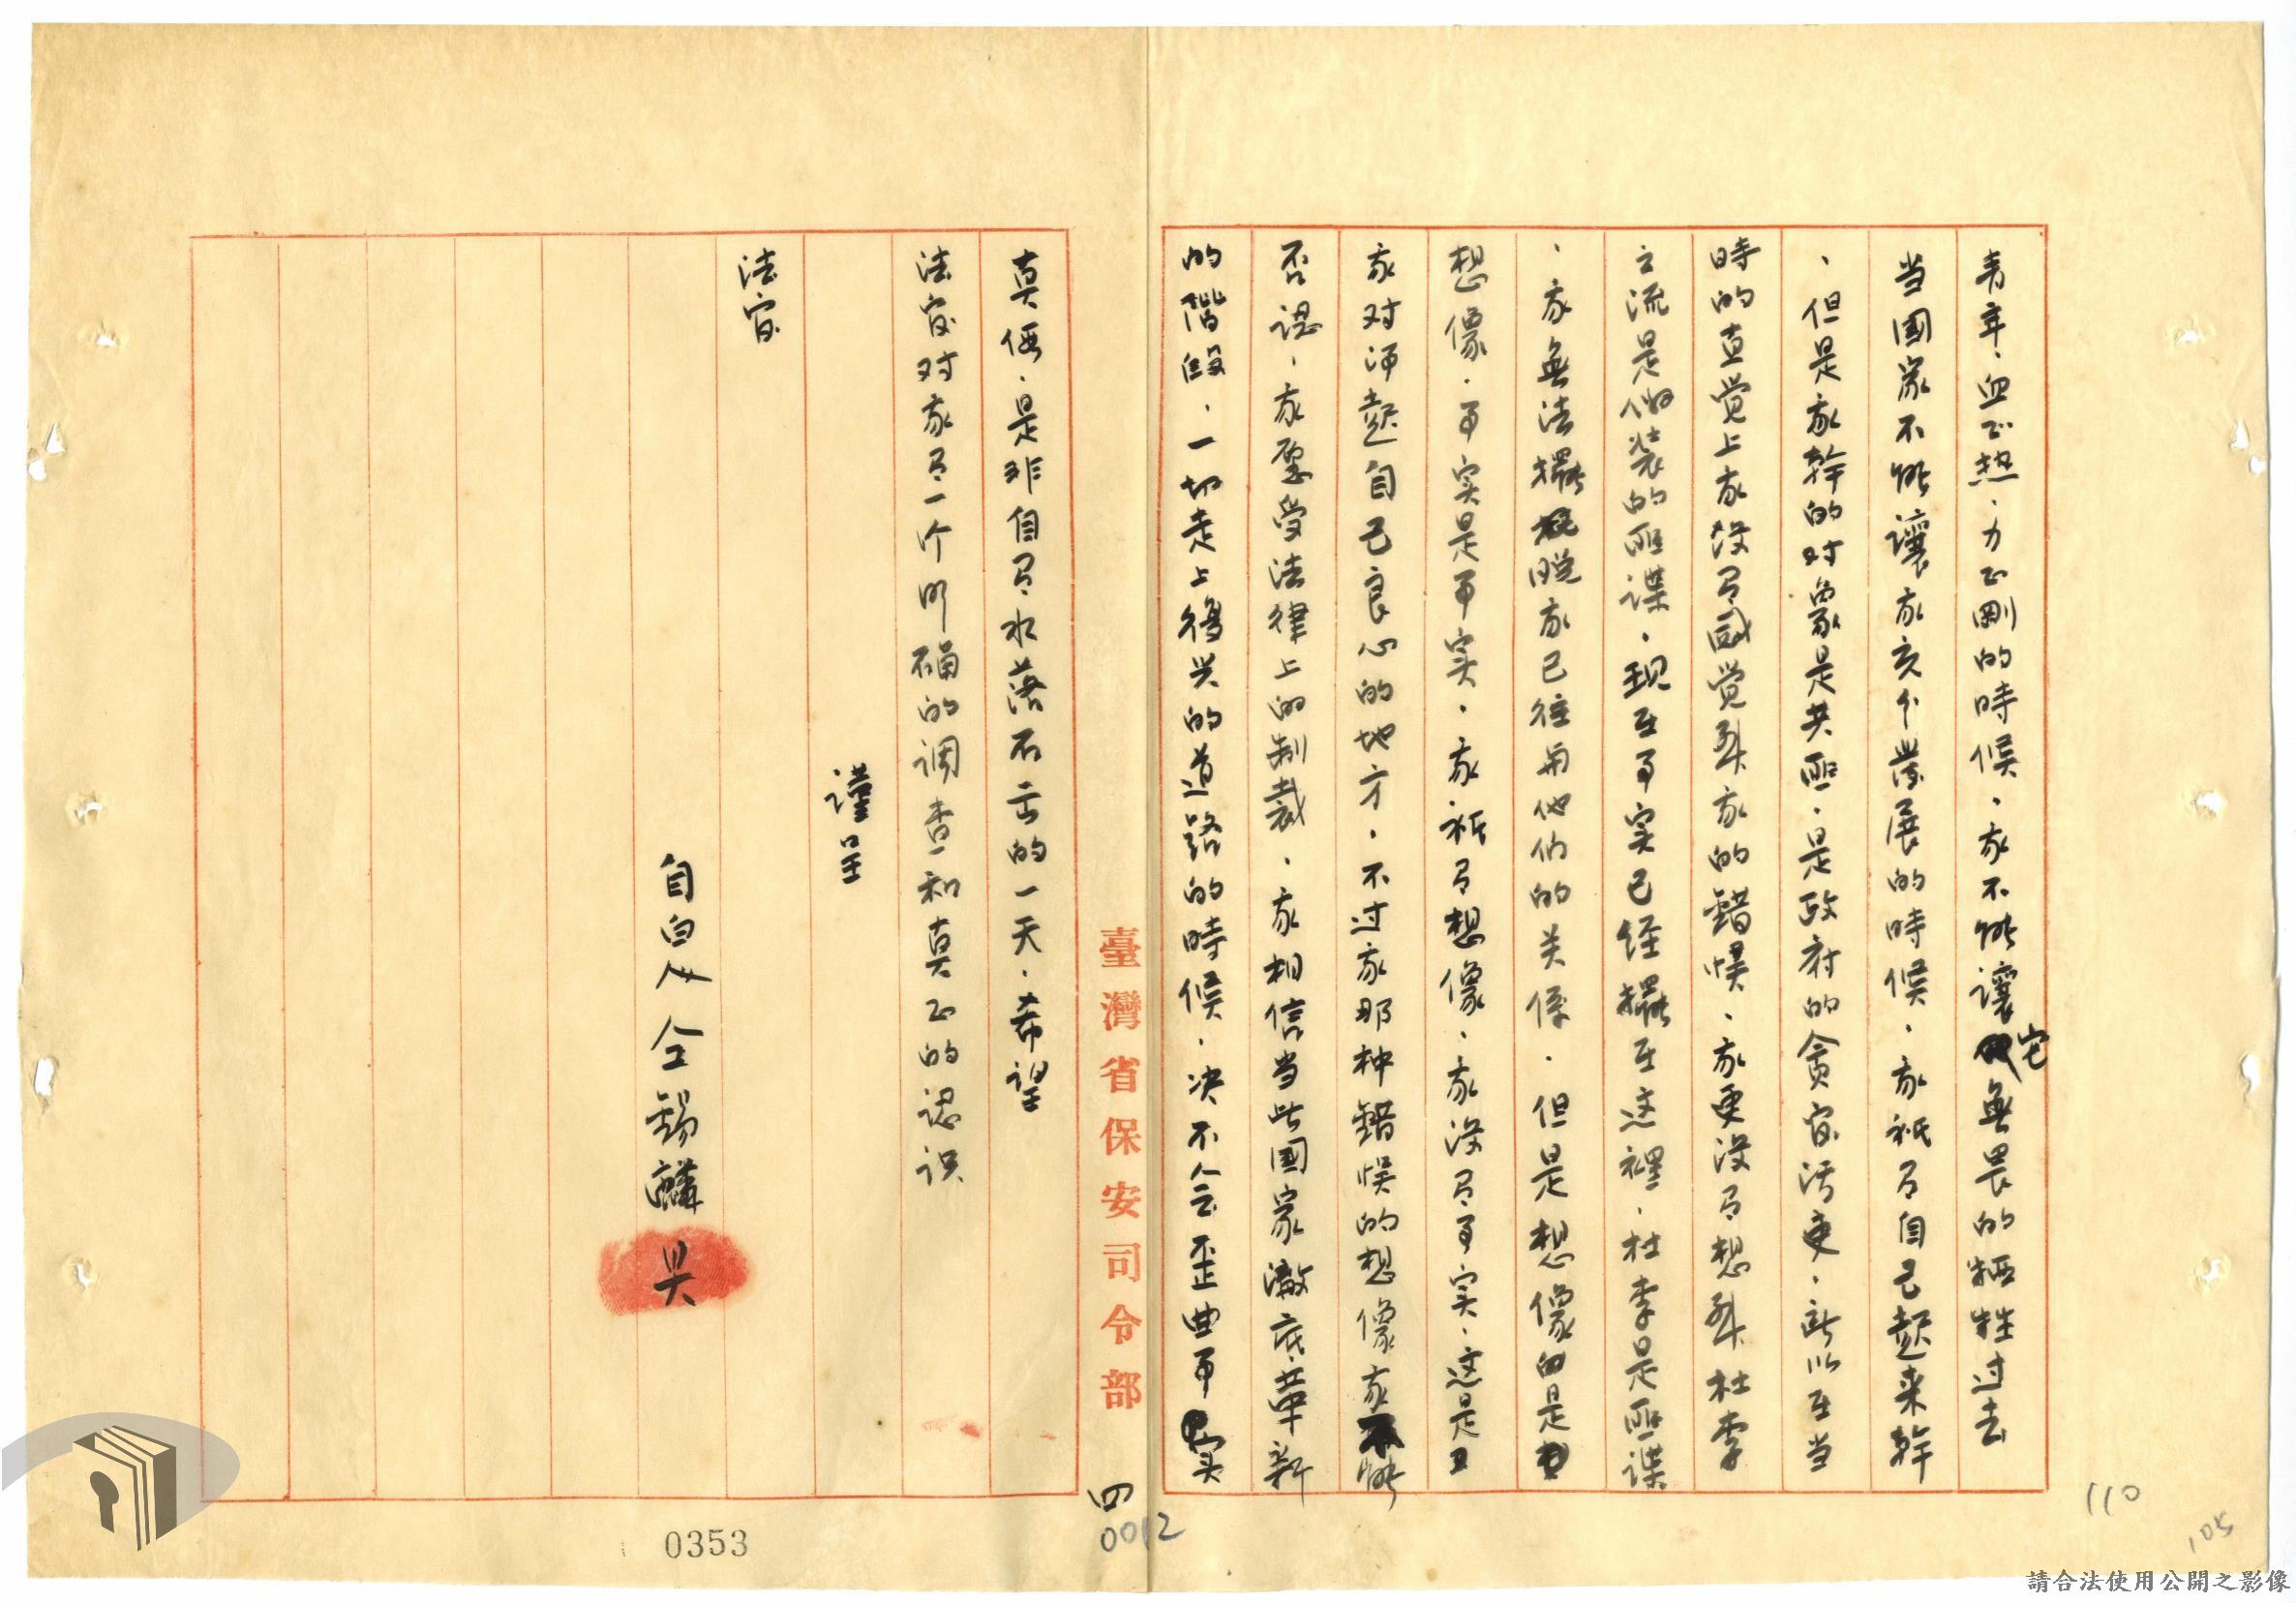 青年．血正热．力正剛的時候．我不能讓它無畏的牺牲过去
当國家不能讓我亥个發展的時候．我祇有自己起来幹
．但是我幹的对象是共匪．是政府的貪官污吏．所以在当
時的直觉上我没有感觉到我的錯悞．我更没有想到杜李
之流是偽装的匪諜．現在事实已经擺在这裡．杜李是匪諜
．我無法擺脱我已往與他们的关係．但是想像的是
想像．事实是事实．我祇有想像．我没有事实．这是
我对评起自己良心的地方．不过我那种錯悞的想像我能
否認．我愿受法律上的制裁．我相信当此国家澈底革新
的階段．一切走上復兴的道路的時候．决不会歪曲事实
真偽．是非自有水落石出的一天．希望
法官对我有一个明確的调查和真正的認识
謹呈
法官
自白人 仝錫麟
臺灣省保安司令部
四
0012
0353
110
105
請合法使用公開之影像